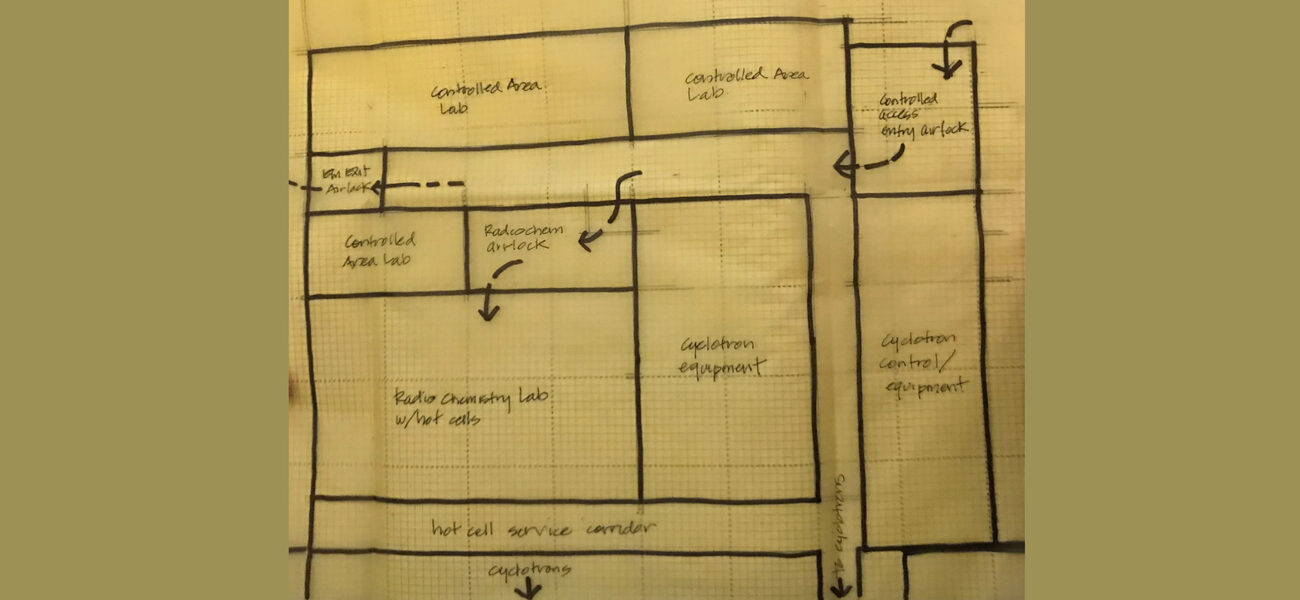 Controlled Area
Lab
Controlled Area
Lab
Controlled
access
entry airlock
Em Exit
Airlock
Controlled
Area Lab
Radiochem
airlock
Cyclotron
equipment
Cyclotron
control/
equipment
Radio Chemistry Lab
w/hot cells
hot cell service corridor
to cyclotrons
cyclotrons